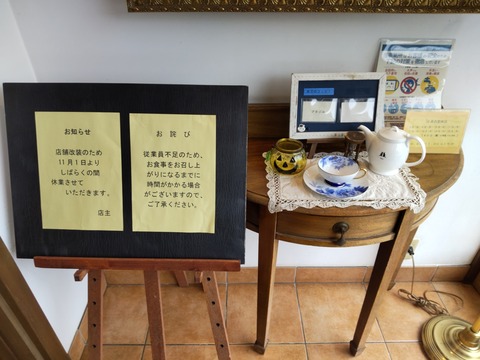 お知らせ
店舗改装のため
11月1日より
しばらくの間
休業させて
いただきます。
店主
お詫び
従業員不足のため、
お食事をお召し上
がりになるまでに
時間がかかる場合
がございますので、
ご了承ください。